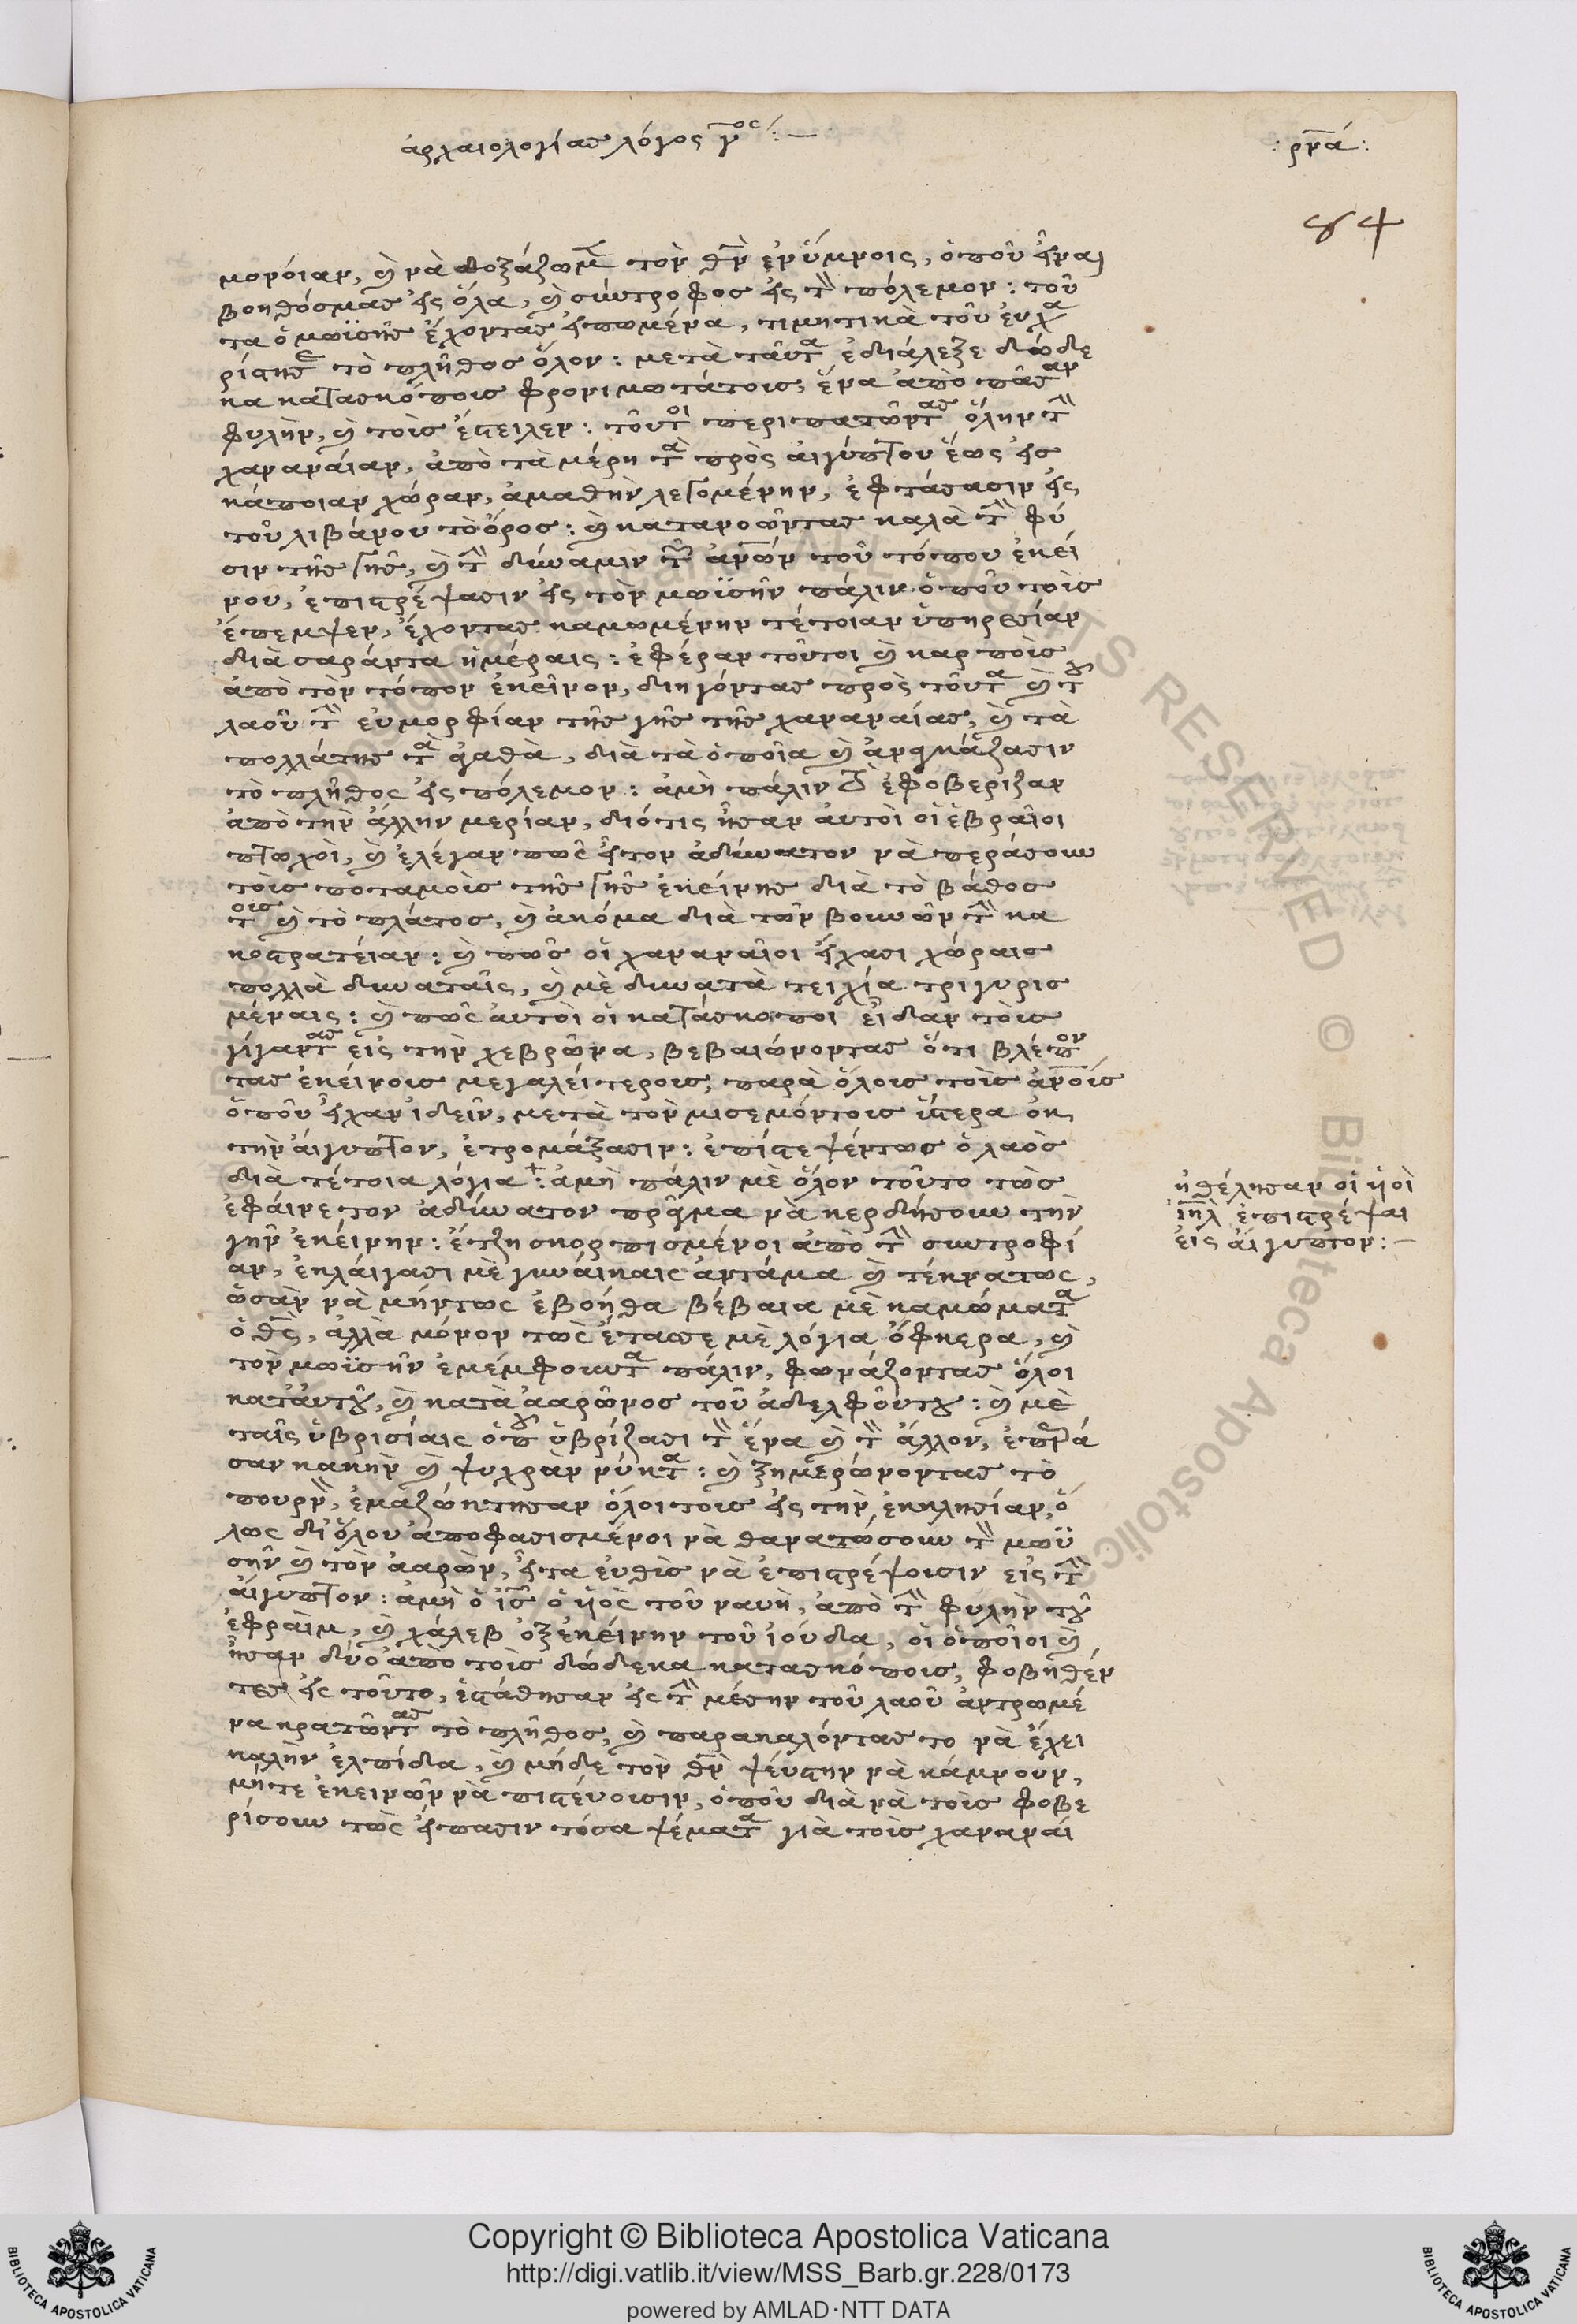 ἀρχαιολογίας λόγος γ^ος :—
: ρνα :
84
μονόιαν, ϗ νὰ δοξάζωμ̅ τὸν θν̅ ἐνὕμνοις, ὁποῦ εἶναι
βοηθόσμας εἰς ὅλα, ϗ σύντροφος εἰς τ̅ πόλεμον : τοῦ
τα ὁ μωϋσῆς ἔχοντας εἰπωμένα, τιμητικὰ τοῦ εὐχα
ρίστησε τὸ πλῆθος ὅλον : μετὰ ταῦτα ἐδιάλεξε δώδε
κα κατασκόποις φρονιμωτάτοις, ἕνα ἀπὸ πᾶσαν
φυλὴν, ϗ τοὶς ἔστειλεν : τοῦτοι περιπατῶντας ὅλην τ̅
χαναναίαν, ἀπὸ τὰ μέρη τὰ πρὸς ἀιγύπτου ἕως εἰσ
κάποιαν χώραν, ἀμαθὴν λεγομένην, ἐφτάσασιν εἰς
τοῦ λιβάνου τὸ ὄρος : ϗ κατανοῶντας καλὰ τ̅ φύ
σιν τῆς γῆς, ϗ τ̅ δύναμιν τῶν ἀνων̅ τοῦ τόπου ἐκεί
νου, ἐπιστρέψασιν εἰς τὸν μωϋσῆν πάλιν ὁποῦ τοὶς
ἔπεμψεν, ἔχοντας καμωμένην τέτοιαν ὑπηρεσίαν
διὰ σαράντα ἡμέραις : ἐφέραν τοῦτοι ϗ καρποὶς
ἀπὸ τὸν τόπον ἐκεῖνον, διηγόντας πρὸς τοῦτα ϗ τοῦ
λαοῦ τ̅ εὐμορφίαν τῆς γῆς τῆς χαναναίας, ϗ τὰ
πολλάτης τὰ ἀγαθὰ, διὰ τὰ ὁποῖα ϗ ἀναγκάζασιν
τὸ πλῆθος εἰς πόλεμον : ἀμὴ πάλιν τὸ ἐφοβερίζαν
ἀπὸ τὴν ἄλλην μερίαν, διότις ἦσαν ἀυτοὶ οἱ ἑβραῖοι
πτωχοὶ, ϗ ἐλέγαν πῶς ἦτον ἀδύνατον νὰ περάσουν
τοὶς ποταμοὶς τῆς γῆς ἐκείνης διὰ τὸ βάθος
τοις ϗ τὸ πλάτος, ϗ ἀκόμα διὰ τῶν βουνῶν τ̅ κα
κοστρατείαν : ϗ πῶς οἱ χαναναῖοι εἴχασι χώραις
πολλὰ δυναταῖς, ϗ μὲ δυνατὰ τειχία τριγυρισ
μέναις : ϗ πῶς ἀυτοὶ οἱ κατάσκοποι εἶδαν τοὶς
γίγαντας εἰς τὴν χεβρῶνα, βεβαιώνοντας ὅτι βλέπον
τας ἐκείνοις μεγαλείτεροις, παρὰ ὅλοις τοὶς ἀνοὶ̅ς
ὁποῦ εἶχαν ἰδεῖν, μετὰ τὸν μισεμόντοις ὕστερα ὀκ
τὴν ἀίγυπτον, ἐτρομάξασιν : ἐπίστεψέντως ὁ λαὸς
διὰ τέτοια λόγια : ἀμὴ πάλιν μὲ ὅλον τοῦτο τῶς
ἐφαίνετον ἀδύνατον πρᾶγμα νὰ κερδήσουν τὴν
γῆν ἐκείνην : ἔτζη σκορπισμένοι ἀπὸ τ̅ συντροφί
αν, ἐκλάιγασι μὲ γυνάικαις ἀντάμα ϗ τέκνατως,
ὡσὰν νὰ μήντως ἐβοήθα βέβαια μὲ καμώματα
ὁ θς̅, ἀλλὰ μόνον τῶς ἔτασσε μὲ λόγια ὄφκερα, ϗ
τὸν μωϋσῆν ἐμέμφουντα πάλιν, φωνάζοντας ὅλοι
κατ' ἀυτοῦ, ϗ κατὰ ἀαρῶνος τοῦ ἀδελφοῦντου : ϗ μὲ
ταῖς ὑβρισίαις ὁποῦ ὑβρίζασι τ̅ ἕνα ϗ τ̅ ἄλλον, ἐπερά
σαν κακὴν ϗ ψυχρὰν νύκτα : ϗ ξημερώνοντας τὸ
πουρν̅, ἐμαζώκτησαν ὅλοι τοις εἰς τὴν ἐκκλησίαν, ὅ
λως δι' ὅλου ἀποφασισμένοι νὰ θανατώσουν τ̅ μωϋ
σῆν ϗ τὸν ἀαρὼν, εἶτα εὐθὶς νὰ ἐπιστρέψουσιν εἰς τ̅
ἀίγυπτον : ἀμὴ ὁ ἰς̅ ὁ ὑιὸς τοῦ ναυὴ, ἀπὸ τ̅ φυλὴν τοῦ
ἐφραὶμ, ϗ χάλεβ ὀξ ἐκείνην τοῦ ἰούδα, οἱ ὁποῖοι ϗ
ἦσαν δύο ἀπὸ τοὶς δώδεκα κατασκόποις, φοβηθέν
τες εἰς τοῦτο, ἐστάθησαν εἰς τ̅ μέσην τοῦ λαοῦ ἀντρωμέ
να κρατῶντας τὸ πλῆθος, ϗ παρακαλόντας το νὰ ἔχει
καλὴν ἐλπίδα, ϗ μήδε τὸν θν̅ ψεύστην νὰ κάμνουν,
μήτε ἐκεινῶν νὰ πιστεύουσιν, ὁποῦ διὰ νὰ τοὶς φοβε
ρίσουν τῶς εἴπασιν τόσα ψέματα γιὰ τοὶς χαναναί
ἠθέλησαν οἱ ὑιοὶ
ιηλ̅ ἐπιστρέψαι
εἰς ἀίγυπτον :—
Copyright © Biblioteca Apostolica Vaticana
http://digi.vatlib.it/view/MSS_Barb.gr.228/0173
powered by AMLAD·NTT DATA